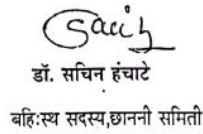 Sacih
डॉ. सचिन हंचाटे
बहि:स्थ सदस्य,छाननी समिती